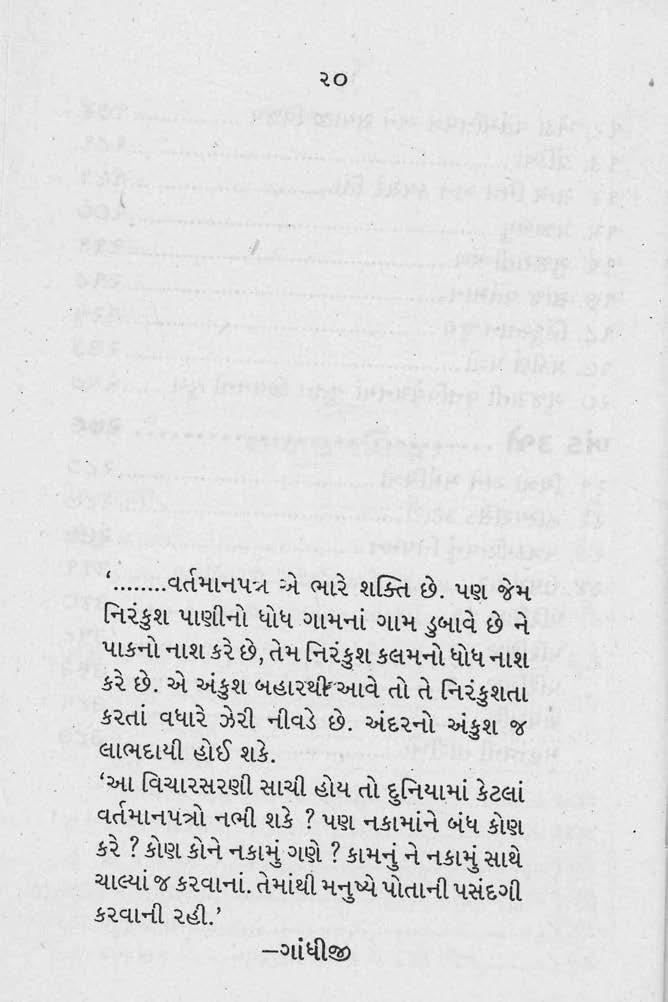 ૨૦
‘........વર્તમાનપત્ર એ ભારે શક્તિ છે. પણ જેમ
નિરંકુશ પાણીનો ધોધ ગામનાં ગામ ડુબાવે છે ને
પાકનો નાશ કરે છે, તેમ નિરંકુશ કલમનો ધોધ નાશ
કરે છે. એ અંકુશ બહારથી આવે તો તે નિરંકુશતા
કરતાં વધારે ઝેરી નીવડે છે. અંદરનો અંકુશ જ
લાભદાયી હોઈ શકે.
‘આ વિચારસરણી સાચી હોય તો દુનિયામાં કેટલાં
વર્તમાનપત્રો નભી શકે ? પણ નકામાંને બંધ કોણ
કરે ? કોણ કોને નકામું ગણે ? કામનું ને નકામું સાથે
ચાલ્યાં જ કરવાનાં. તેમાંથી મનુષ્યે પોતાની પસંદગી
કરવાની રહી.’
–ગાંધીજી